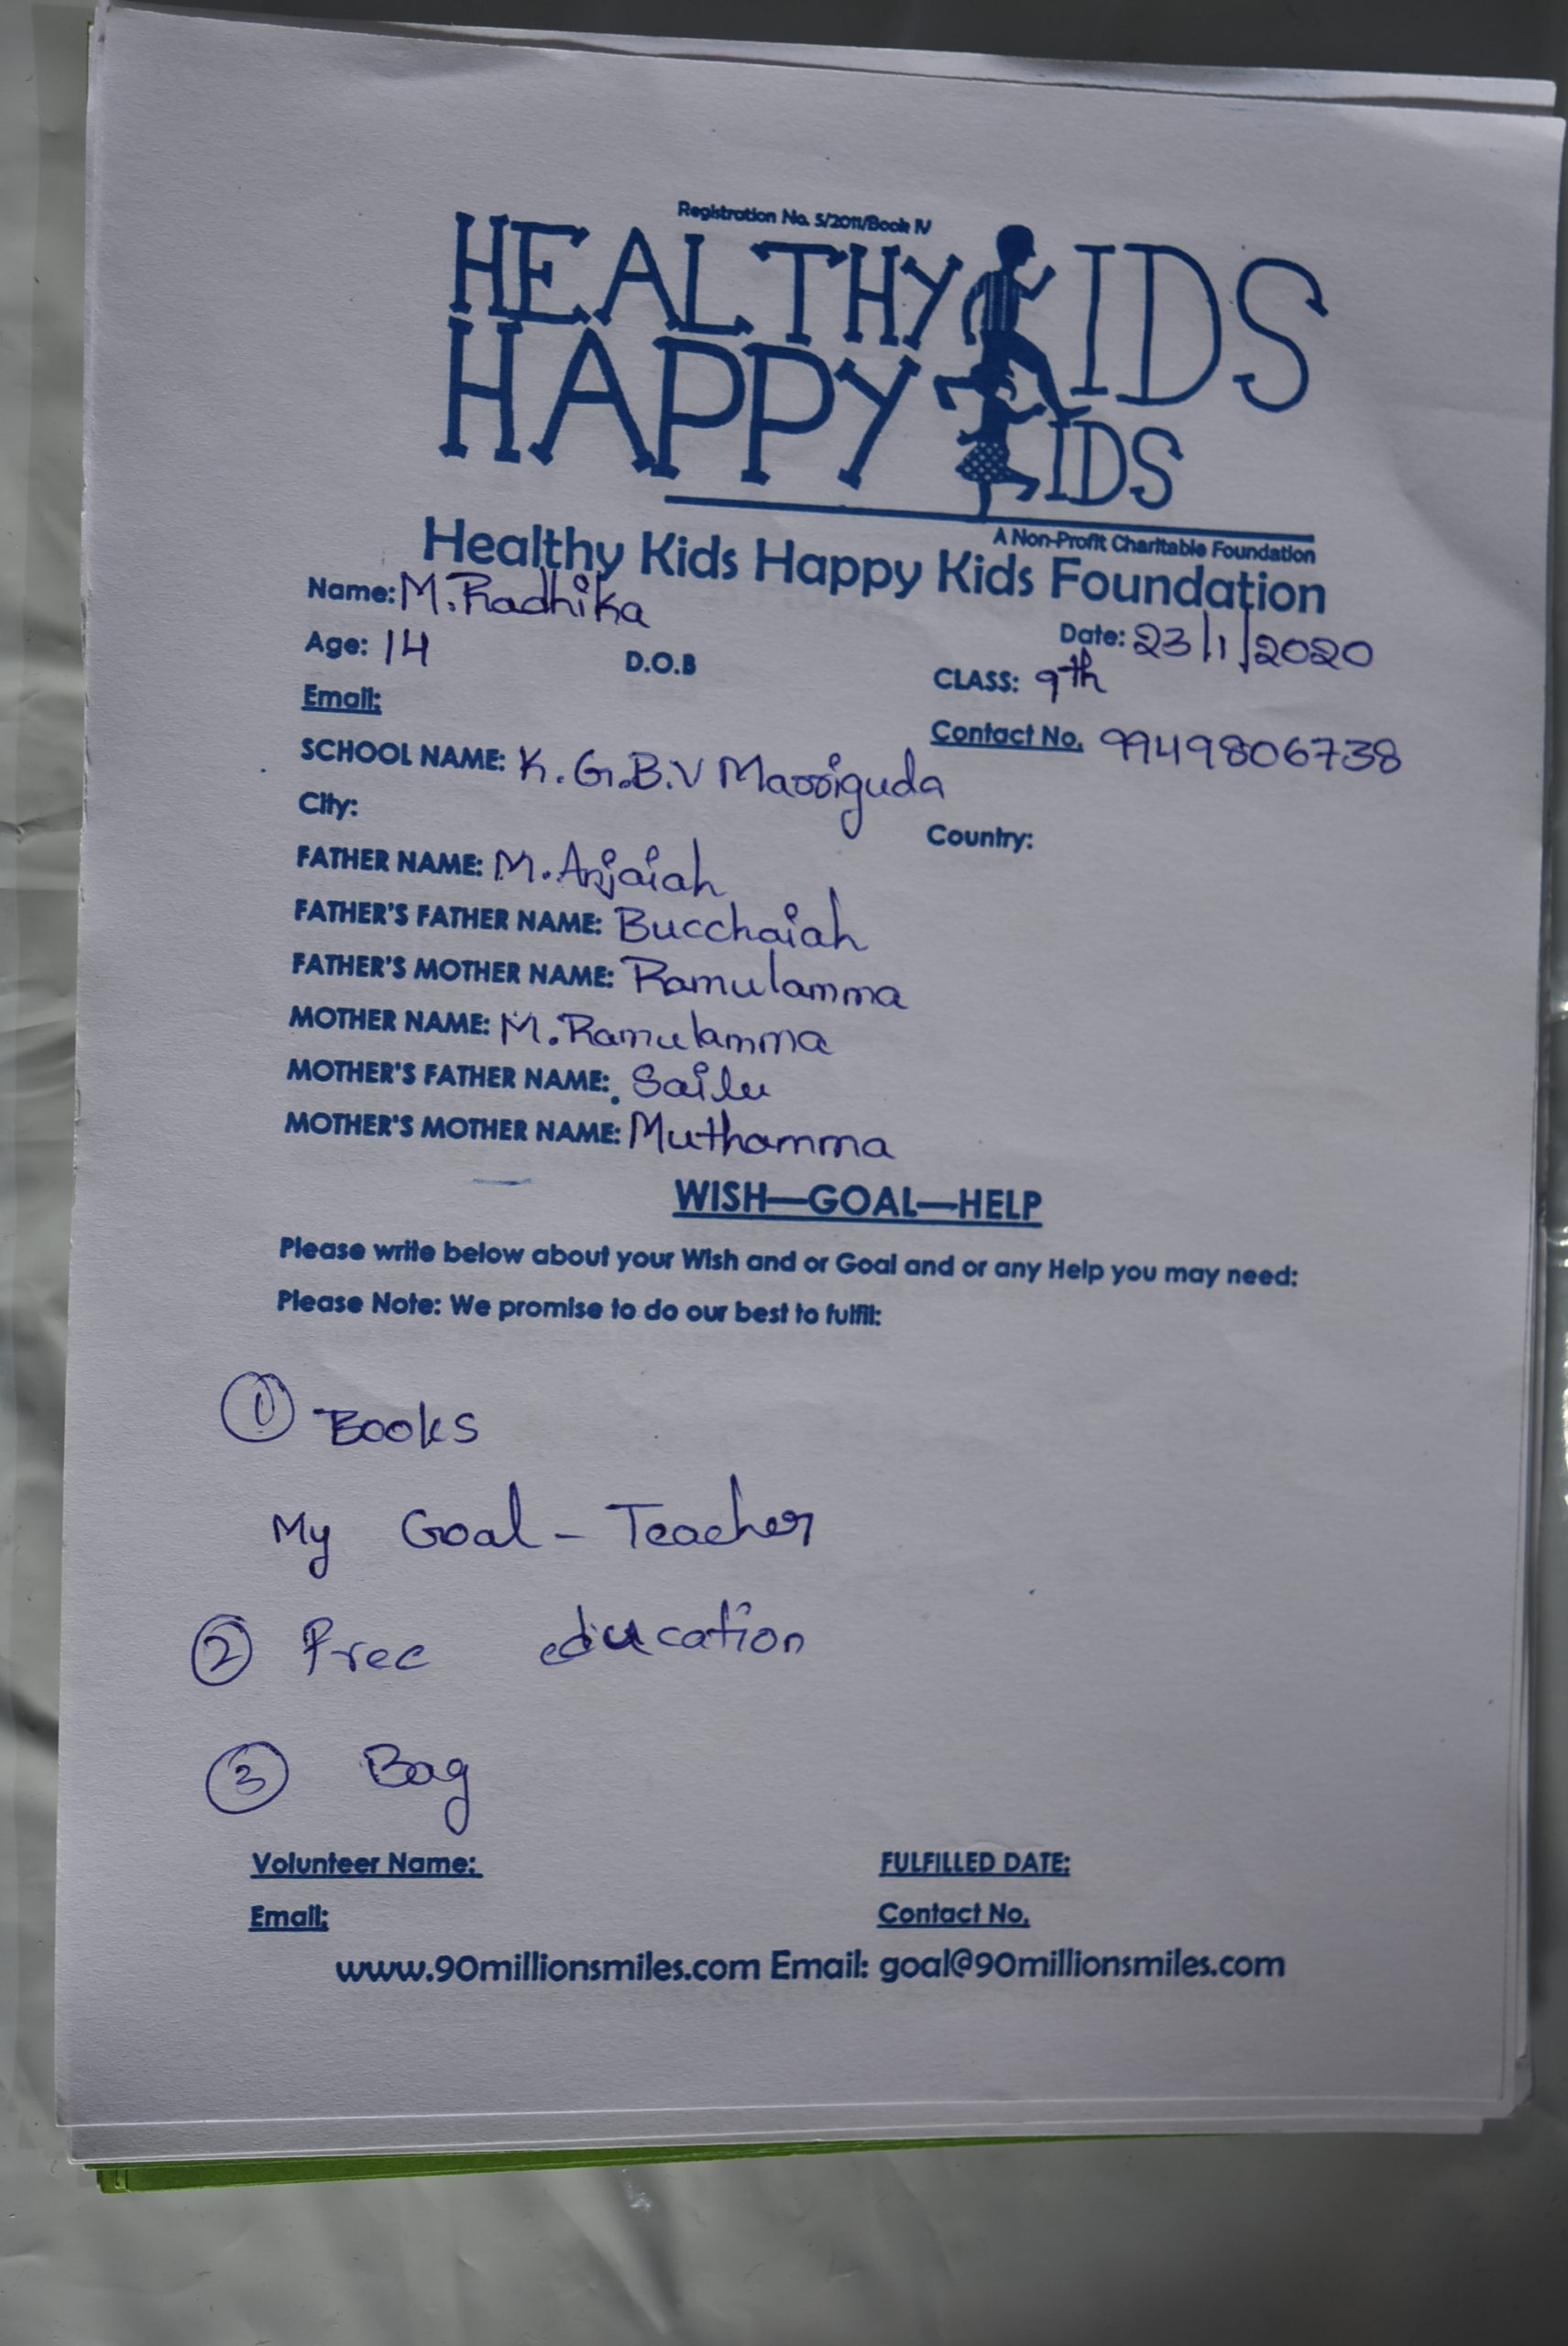 Registration No. 5/2011/Book IV
HEALTHY KIDS
HAPPY KIDS
A Non-Profit Charitable Foundation
Healthy Kids Happy Kids Foundation
Name: M. Radhika
Date: 23/1/2020
Age: 14 D.O.B CLASS: 9th
Email: Contact No. 9949806738
SCHOOL NAME: K.G.B.V Marriguda
City: Country:
FATHER NAME: M. Anjaiah
FATHER'S FATHER NAME: Bucchaiah
FATHER'S MOTHER NAME: Ramulamma
MOTHER NAME: M. Ramulamma
MOTHER'S FATHER NAME: Sailu
MOTHER'S MOTHER NAME: Muthamma
WISH—GOAL—HELP
Please write below about your Wish and or Goal and or any Help you may need:
Please Note: We promise to do our best to fulfil:
1 Books
My Goal - Teacher
2 Free education
3 Bag
Volunteer Name: FULFILLED DATE:
Email: Contact No.
www.90millionsmiles.com Email: goal@90millionsmiles.com